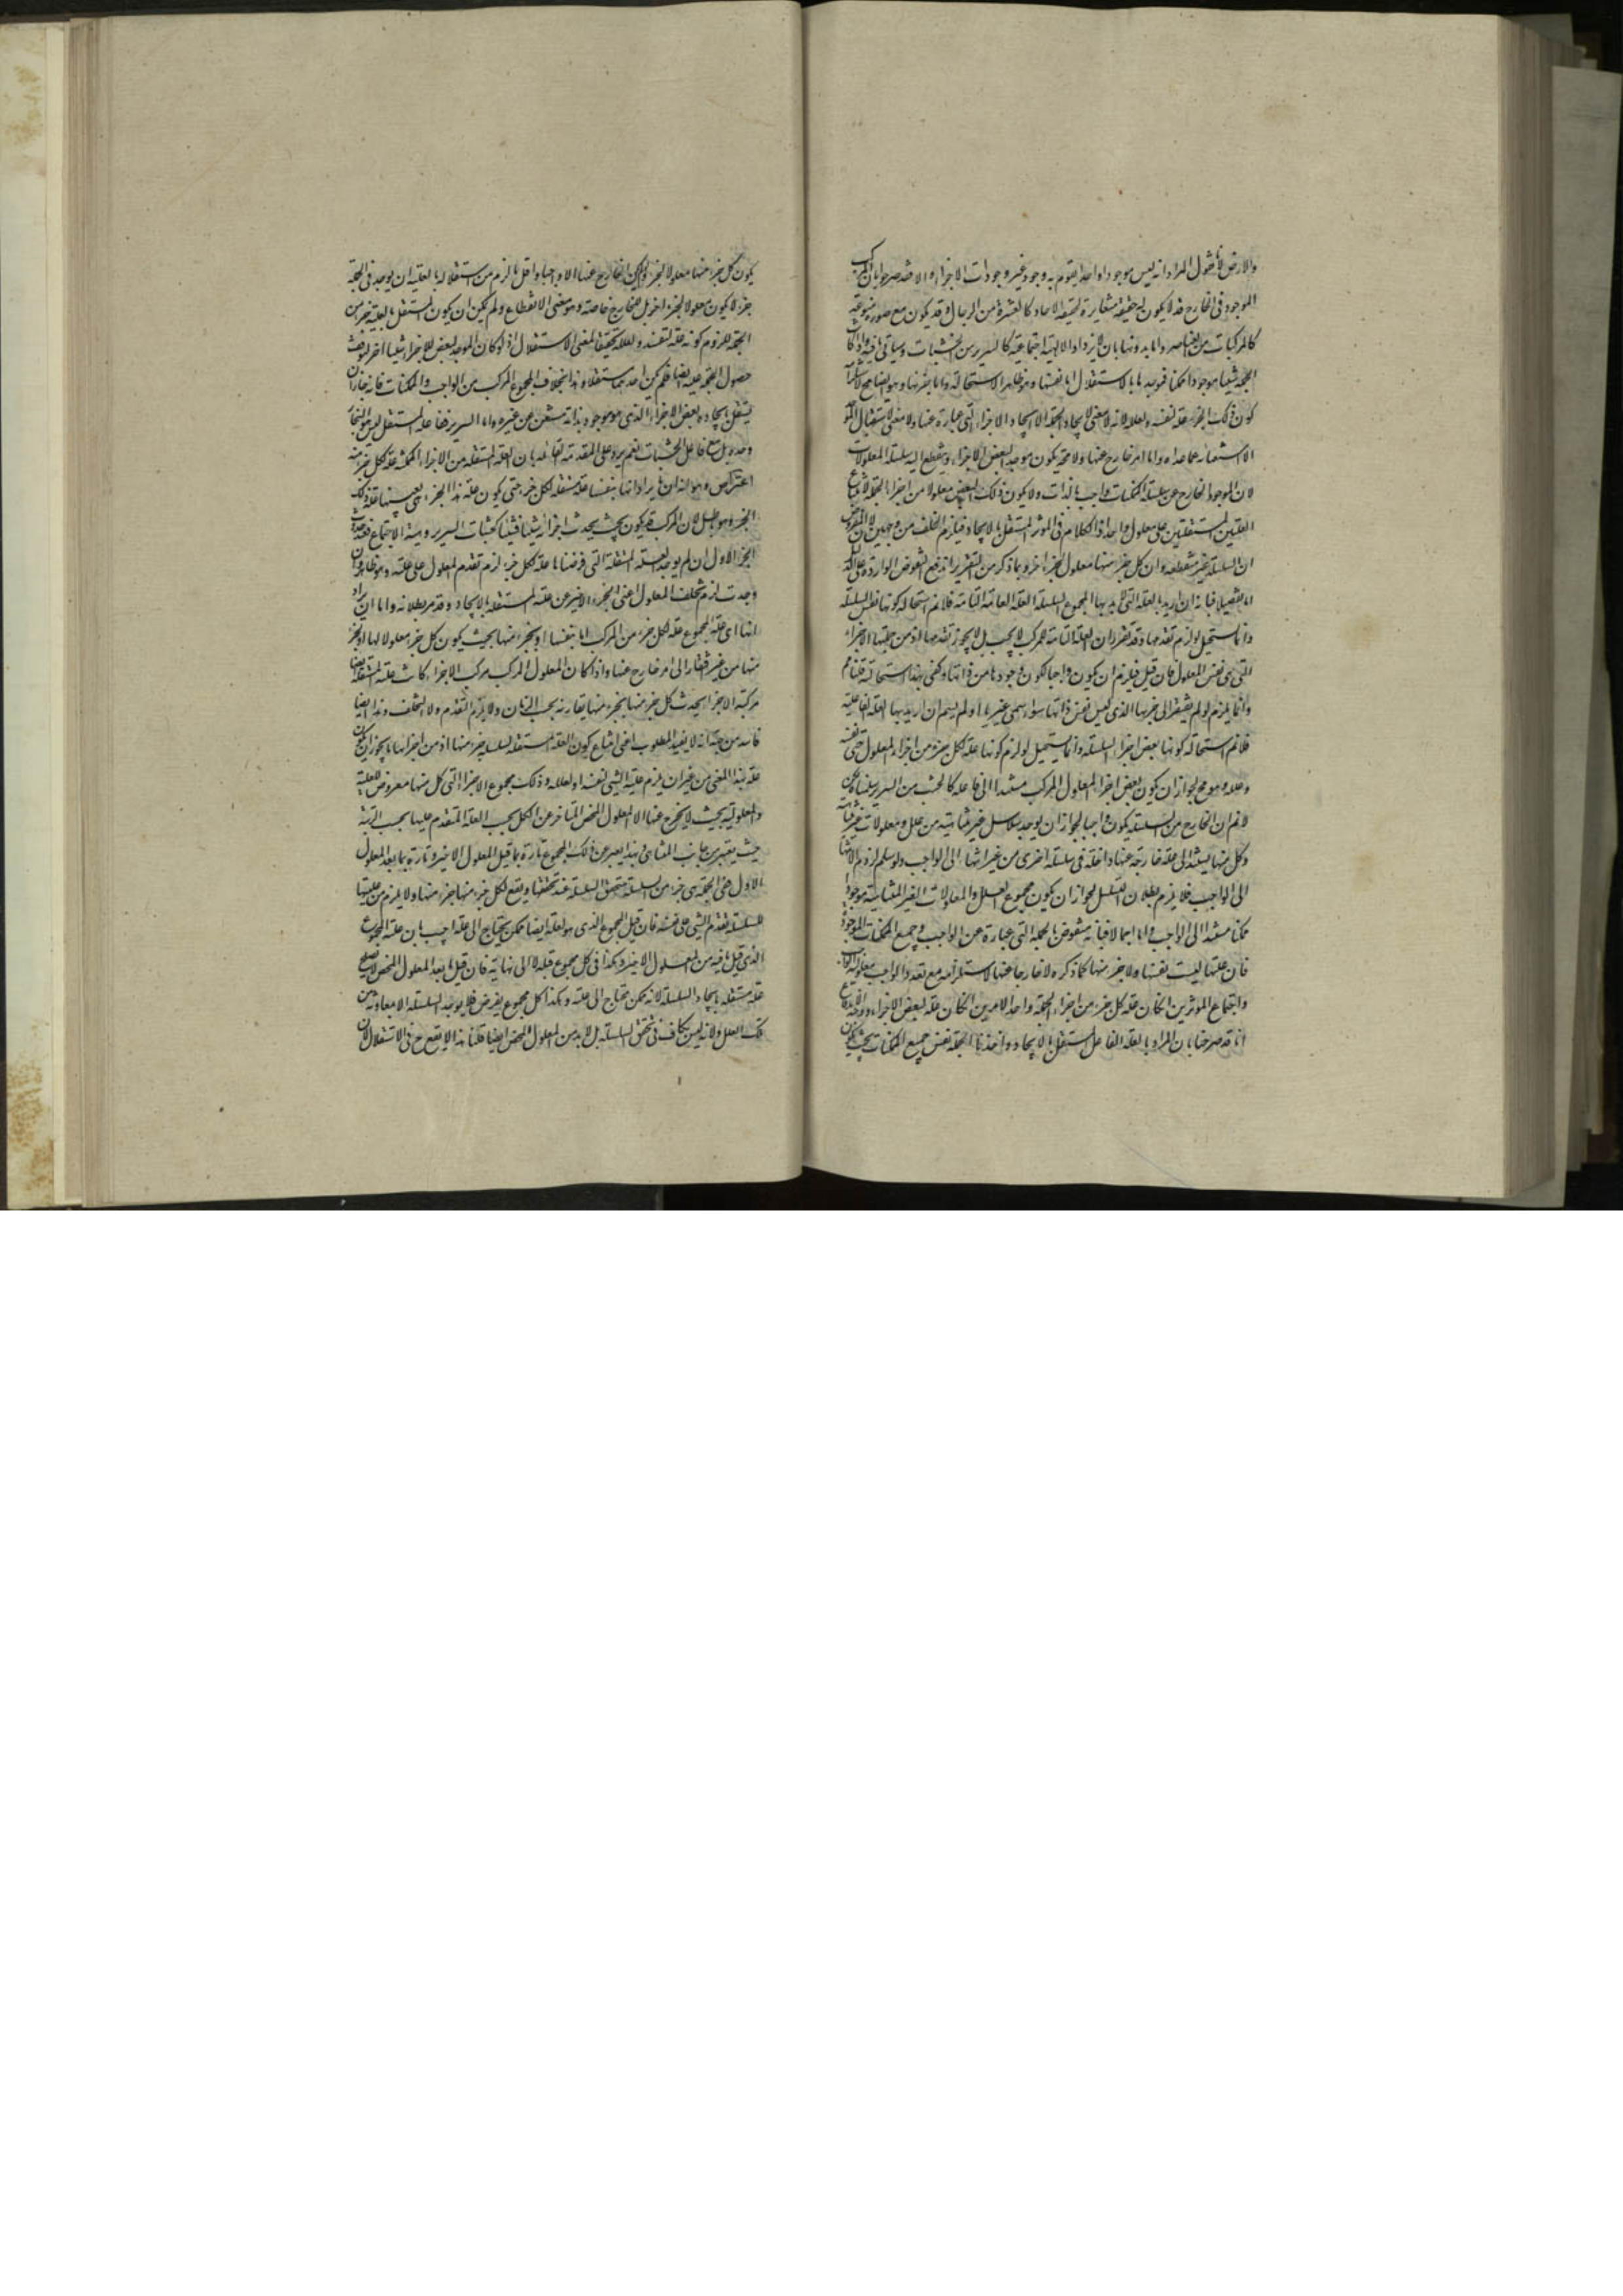 والارض لانا نقول المراد انه ليس موجودا واحدا يقوم به وجود غير وجودات الاجزاء والا فقد صرحوا بان المركب
الموجود في الخارج قد لا يكون له حقيقة مغايرة لحقيقة الاحاد كالعشرة من الرجال وقد يكون مع صورة نوعية
كالمركبات من العناصر واما بدونها بان لا يزداد الا هيئة اجتماعية كالسرير من الخشبات وسيأتي واذا كان
الجملة شيئا موجودا ممكنا فموجدها بالاستقلال اما نفسها وهو ظاهر الاستحالة واما جزؤها وهو ايضا مح لاستلزامه
كون ذلك الجزء علة لنفسه ولعلله لانه لا معنى لايجاد الجملة الا ايجاد الاجزاء التي عبارة عنها ولا معنى لاستقلال الموجد
الا استغناؤه عما عداه واما امر خارج عنها ولا محة يكون موجدا لبعض الاجزاء وينقطع اليه سلسلة المعلولات
لان الموجود الخارج عن سلسلة الممكنات واجب بالذات ولا يكون ذلك البعض معلولا من اجزاء الجملة لامتناع
العلتين المستقلتين على معلول واحد اذ الكلام في المؤثر المستقل بالايجاد فيلزم الخلف من وجهين لان المفروض
ان السلسلة غير منقطعة وان كل جزء منها معلول لجزء اخر وبما ذكر من التقرير اندفع النقوض الواردة على الدليل
اما تفصيلا فبانه ان اريد بالعلة التي لابد بها لمجموع السلسلة العلة التامة فلا نم استحالة كونها نفس السلسلة
وانما يستحيل لو لزم تقدمها وقد تقرر ان العلة التامة للمركب لا يجب بل لا يجوز تقدمها اذ من جملتها الاجزاء
التي هي نفس المعلول فان قيل فيلزم ان يكون واجبا لكون وجودها من ذاتها وكفى بهذا استحالة قلنا مم
وانما يلزم لو لم يفتقر الى جزئها الذي ليس نفس ذاتها سواء سمي غيرها او لم يسم وان اريد بها العلة الفاعلية
فلا نم استحالة كونها بعض اجزاء السلسلة وانما يستحيل لو لزم كونها علة لكل جزء من اجزاء المعلول حتى نفسه
وعلله وهو مم لجواز ان يكون بعض اجزاء المعلول المركب مستندا الى فاعله كالخشب من السرير سلمنا لكن
لا نم ان الخارج من السلسلة يكون واجبا لجواز ان يوجد سلاسل غير متناهية من علل ومعلولات غير متناهية
وكل منها يستند الى علة خارجة عنها داخلة في سلسلة اخرى من غير انتهاء الى الواجب ولو سلم لزوم الانتهاء
الى الواجب فلا يلزم بطلان التسلسل لجواز ان يكون مجموع العلل والمعلولات الغير المتناهية موجودا
ممكنا مستندا الى الواجب واما اجمالا فبانه منقوض بالجملة التي عبارة عن الواجب وجميع الممكنات الموجودة
فان علتها ليست نفسها ولا جزء منها كما ذكر ولا خارجا عنها لاستلزامه مع تعدد الواجب معلولية الواجب
واجتماع المؤثرين ان كان علة لكل جزء من اجزاء الجملة واحد الامرين ان كان علة لبعض الاجزاء ووجه الاندفاع
انا قد صرحنا بان المراد بالعلة الفاعل المستقل بالايجاد واخذنا الجملة نفس جميع الممكنات بحيث يكون
يكون كل جزء منها معلولا لجزء ولم يكن الخارج عنها الا واجبا واقل ما لزم من استقلاله بالعلية ان يوجد في الجملة
جزء لا يكون معلولا لجزء اخر بل للخارج خاصة وهو معنى الانقطاع ولم يمكن ان يكون المستقل بالعلية جزء من
الجملة للزوم كونه علة لنفسه ولعلله تحقيقا لمعنى الاستقلال اذ لو كان الموجد لبعض الاجزاء شيئا اخر لتوقف
حصول الجملة عليه ايضا فلم يكن احدهما مستقلا وهذا بخلاف المجموع المركب من الواجب والممكنات فانه جاز ان
يستقل بايجاده بعض الاجزاء الذي هو موجود بذاته مستغن عن غيره واما السرير ففاعله المستقل ليس هو النجار
وحده بل مع فاعل الخشبات نعم يرد على المقدمة القائلة بان العلة المستقلة من الاجزاء الممكنة علة لكل جزء منه
اعتراض وهو انه ان يراد انها بنفسها علة مستقلة لكل جزء حتى يكون علة هذا الجزء هي بعينها علة ذلك
الجزء وهو باطل لان المركب قد يكون بحيث يحدث اجزاؤه شيئا فشيئا كخشبات السرير وهيئته الاجتماعية فعند حدوث
الجزء الاول ان لم يوجد العلة المستقلة التي فرضناها علة لكل جزء لزم تقدم المعلول على علته وهو ظاهر وان
وجدت لزم تخلف المعلول اعني الجزء الاخير عن علته المستقلة بالايجاد وقد مر بطلانه واما ان يراد
انها اي علة المجموع علة لكل جزء من المركب اما بنفسها او بجزء منها بحيث يكون كل جزء معلولا لها او لجزء
منها من غير افتقار الى امر خارج عنها واذا كان المعلول المركب مركب الاجزاء كانت علته المستقلة ايضا
مركبة الاجزاء يحدث كل جزء منها بجزء منها يقارنه بحسب الزمان ولا يلزم التقدم ولا التخلف وهذا ايضا
فاسد من جهة انه لا يفيد المطلوب اعني امتناع كون العلة المستقلة للسلسلة جزء منها اذ من اجزائها ما يجوز ان يكون
علة بهذا المعنى من غير ان يلزم علية الشيء لنفسه او لعلله وذلك مجموع الاجزاء التي كل منها معروض للعلية
والمعلولية بحيث لا يخرج عنها الا المعلول المحض المتاخر عن الكل بحسب العلة المتقدم عليها بحسب الرتبة
حيث يعتبر من جانب المتناهي ولهذا يعبر عن ذلك المجموع تارة بما قبل المعلول الاخير وتارة بما بعد المعلول
الاول ففي الجملة هي جزء من السلسلة تتحقق السلسلة عند تحققها ويقع لكل جزء منها جزء منها ولا يلزم من عليتها
للسلسلة تقدم الشيء على نفسه فان قيل المجموع الذي هو العلة ايضا ممكن يحتاج الى علة اجيب بان علته المجموع
الذي قبل ما فيه من المعلول الاخير وهكذا في كل مجموع قبله لا الى نهاية فان قيل ما بعد المعلول المحض لا يصلح
علة مستقلة بايجاد السلسلة لانه ممكن محتاج الى علته وهكذا كل مجموع يفرض فلا يوجد السلسلة الا بمعاونة من
تلك العلل ولانه ليس بكاف في تحقق السلسلة بل لابد من المعلول المحض ايضا قلنا هذا لا يقدح في الاستقلال لان